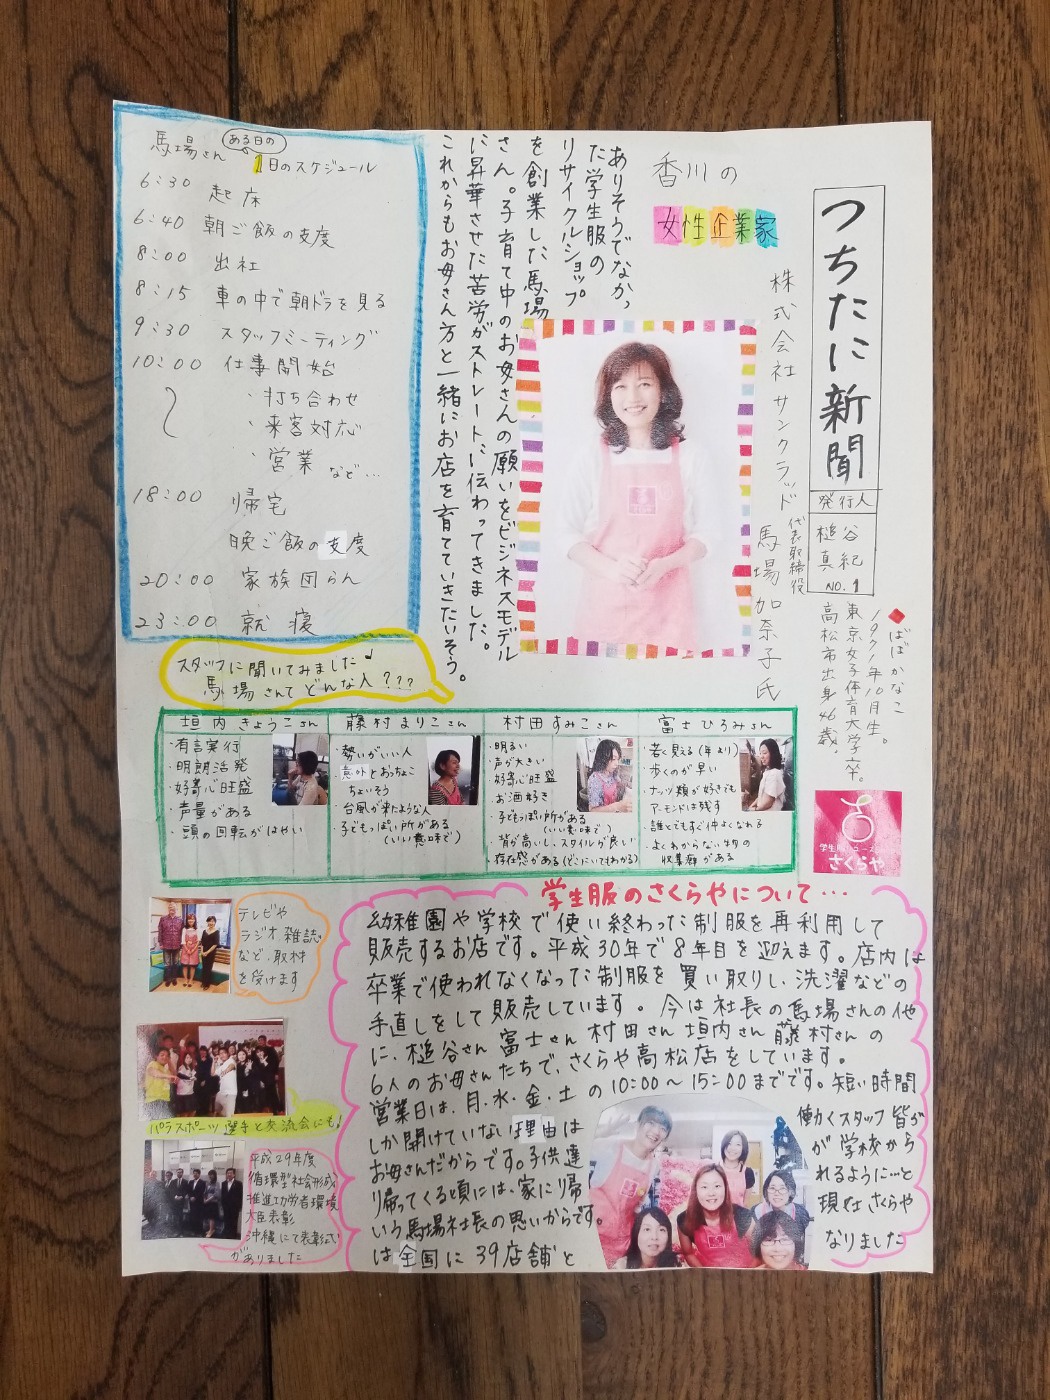 つちたに新聞
発行人
槌谷
真紀
NO.1
香川の
女性企業家
株式会社 サンクラッド 代表取締役 馬場加奈子氏
◆ばばかなこ
1971年10月生。
東京女子体育大学卒。
高松市出身46歳。
ありそうでなかっ
た学生服の
リサイクルショップ
を創業した馬場
さん。子育て中のお母さんの願いをビジネスモデル
に昇華させた苦労がストレートに伝わってきました。
これからもお母さん方と一緒にお店を育てていきたいそう。
馬場さん ある日の
1日のスケジュール
6:30 起床
6:40 朝ご飯の支度
8:00 出社
8:15 車の中で朝ドラを見る
9:30 スタッフミーティング
10:00 仕事開始
・打ち合わせ
・来客対応
・営業 など…
18:00 帰宅
晩ご飯の支度
20:00 家族団らん
23:00 就寝
スタッフに聞いてみました♩
馬場さんてどんな人???
垣内きょうこさん
・有言実行
・明朗活発
・好奇心旺盛
・声量がある
・頭の回転がはやい
藤村まりこさん
・勢いがいい人
意外とおっちょこ
ちょいそう
台風が来たような人
・子どもっぽい所がある
(いい意味で)
村田すみこさん
・明るい
・声が大きい
・好奇心旺盛
・お酒好き
・子どもっぽい所がある
(いい意味で)
・背が高いし、スタイルが良い
・存在感がある(どこにいてもわかる)
富士ひろみさん
・若く見える(年より)
・歩くのが早い
・ナッツ類が好きでも
アーモンドは残す
・誰とでもすぐ仲よくなれる
・よくわからない物の
収集癖がある
さくらや
テレビや
ラジオ雑誌
など、取材
を受けます
パラスポーツ選手と交流会にも!
平成29年度
循環型社会形成
推進功労者環境
大臣表彰
沖縄にて表彰式
がありました
学生服のさくらやについて…
幼稚園や学校で使い終わった制服を再利用して
販売するお店です。平成30年で8年目を迎えます。店内は
卒業で使われなくなった制服を買い取りし、洗濯などの
手直しをして販売しています。今は社長の馬場さんの他
に、槌谷さん富士さん村田さん垣内さん藤村さんの
6人のお母さんたちで、さくらや高松店をしています。
営業日は、月・水・金・土の10:00〜15:00までです。短い時間
しか開けていない理由は 働くスタッフ皆が
お母さんだからです。子供達 が学校から
帰ってくる頃には、家に帰 れるように…と
いう馬場社長の思いからです。 現在さくらや
は全国に39店舗と なりました